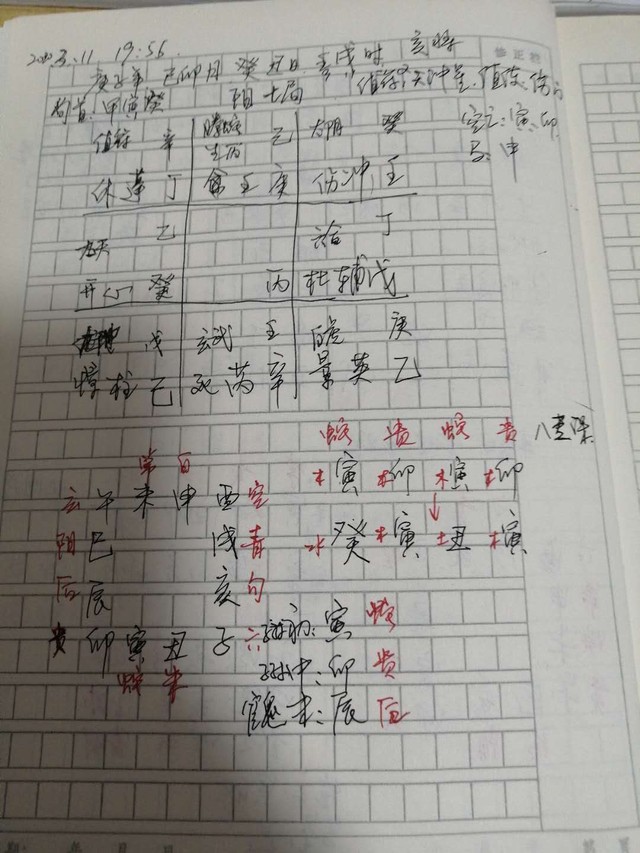 2020.3.11 19:56
庚子年 己卯月 癸丑日 壬戌时 亥将
旬首:甲寅癸 阳七局 值符:天冲星 值使:伤门
值符 辛 螣蛇 己 太阴 癸 空亡:寅卯
生丙 马:申
休蓬丁 庚 伤冲壬
九天 乙 六合 丁
开心癸 丙 杜辅戊
戊 玄武 壬 白虎 庚
惊柱己 死芮辛 景英乙
蛇 贵 蛇 贵 八专课
常 白 木寅 木卯 木寅 木卯
玄 午 未 申 酉 空
阴 巳 戌 青 水癸 木寅 土丑 木寅
后 辰 亥 勾
贵 卯 寅 丑 子 六 初:寅 蛇
蛇 朱 中:卯 贵
官鬼末:辰 后